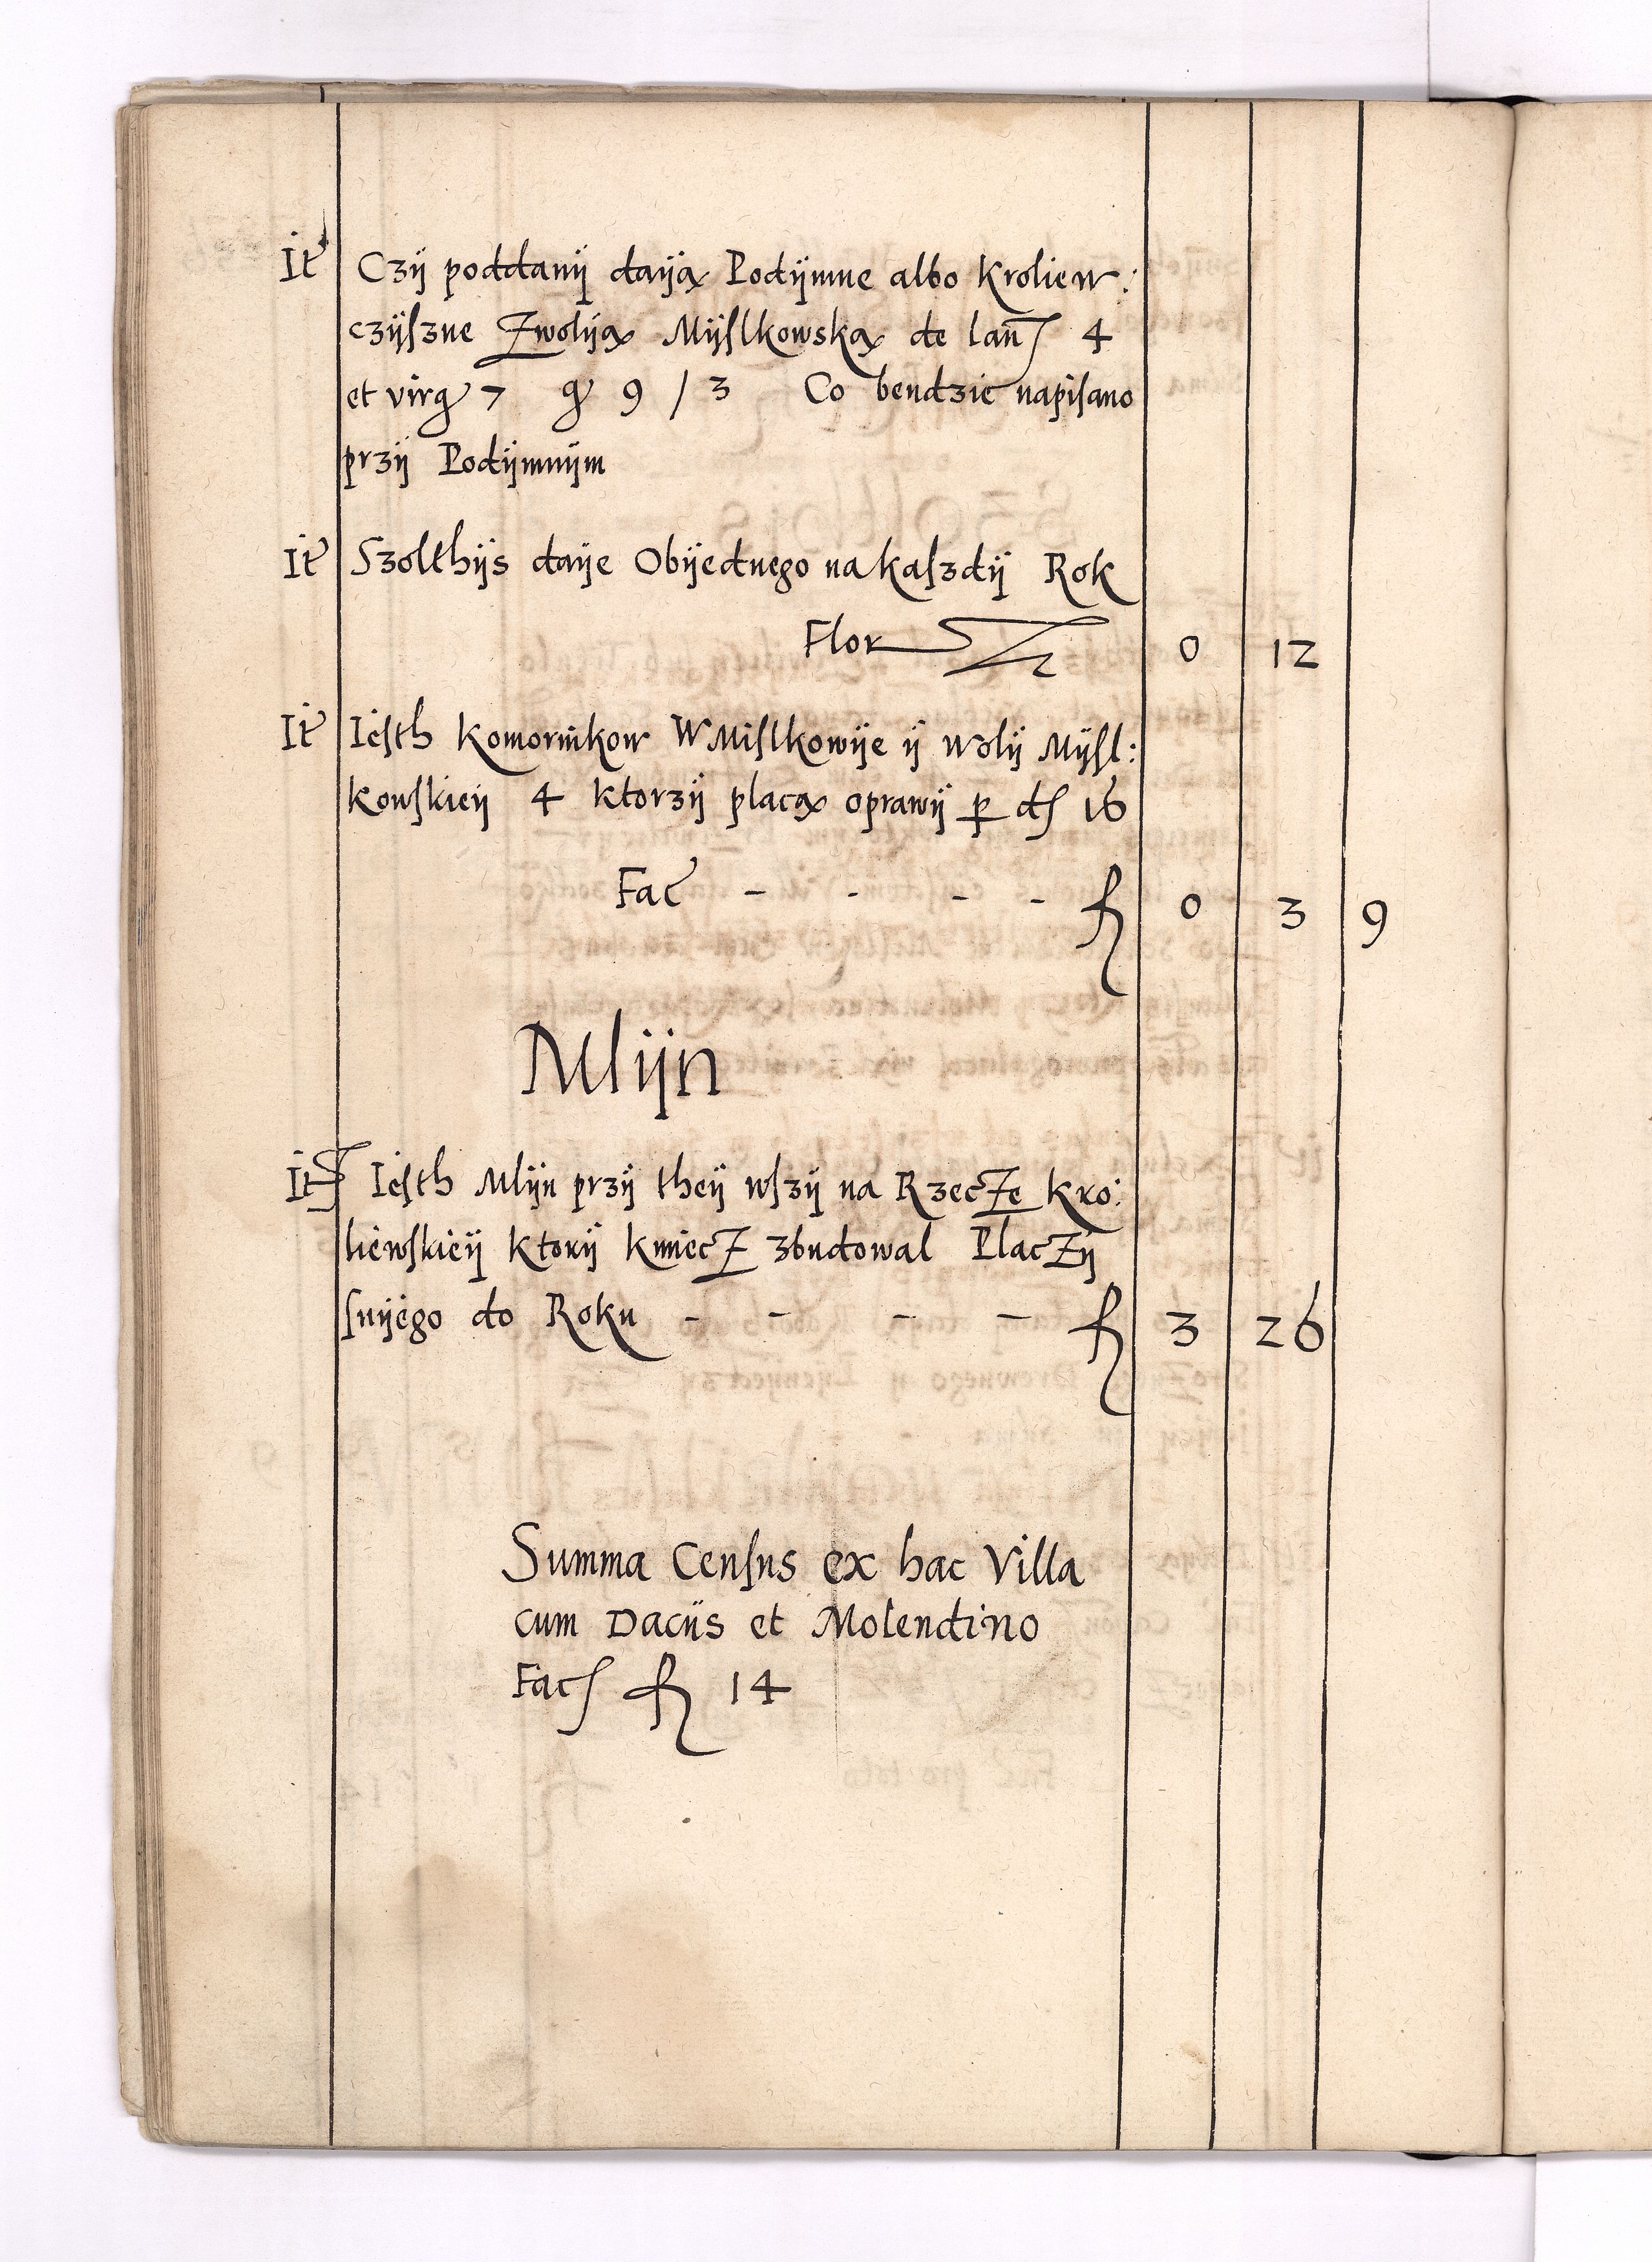 It Czÿ poddanÿ daÿą Podÿmne albo Kroliew:
czÿſzne Zwolÿą Mÿſlkowską de lan 4
et virg 7 g 9 / 3 Co bendzie napiſano
przÿ Podÿmnÿm
It Szolthÿs daÿe Obÿednego na kaſzdÿ Rok
Flor 0 12
It Ieſth Komornikow W Miſlkowÿe ÿ wolÿ Mÿſl:
kowſkieÿ 4 ktorzÿ placą oprawÿ per d 16
Fac - - - - fl 0 3 9
Mlÿn
It Ieſth Mlÿn przÿ theÿ wſzÿ na Rzecze Kro:
liewſkieÿ ktorÿ kmiecz zbudowal Placzÿ
ſnÿego do Roku - - - - fl 3 26
Summa Cenſus ex hac Villa
cum Daciis et Molendino
Fac fl 14